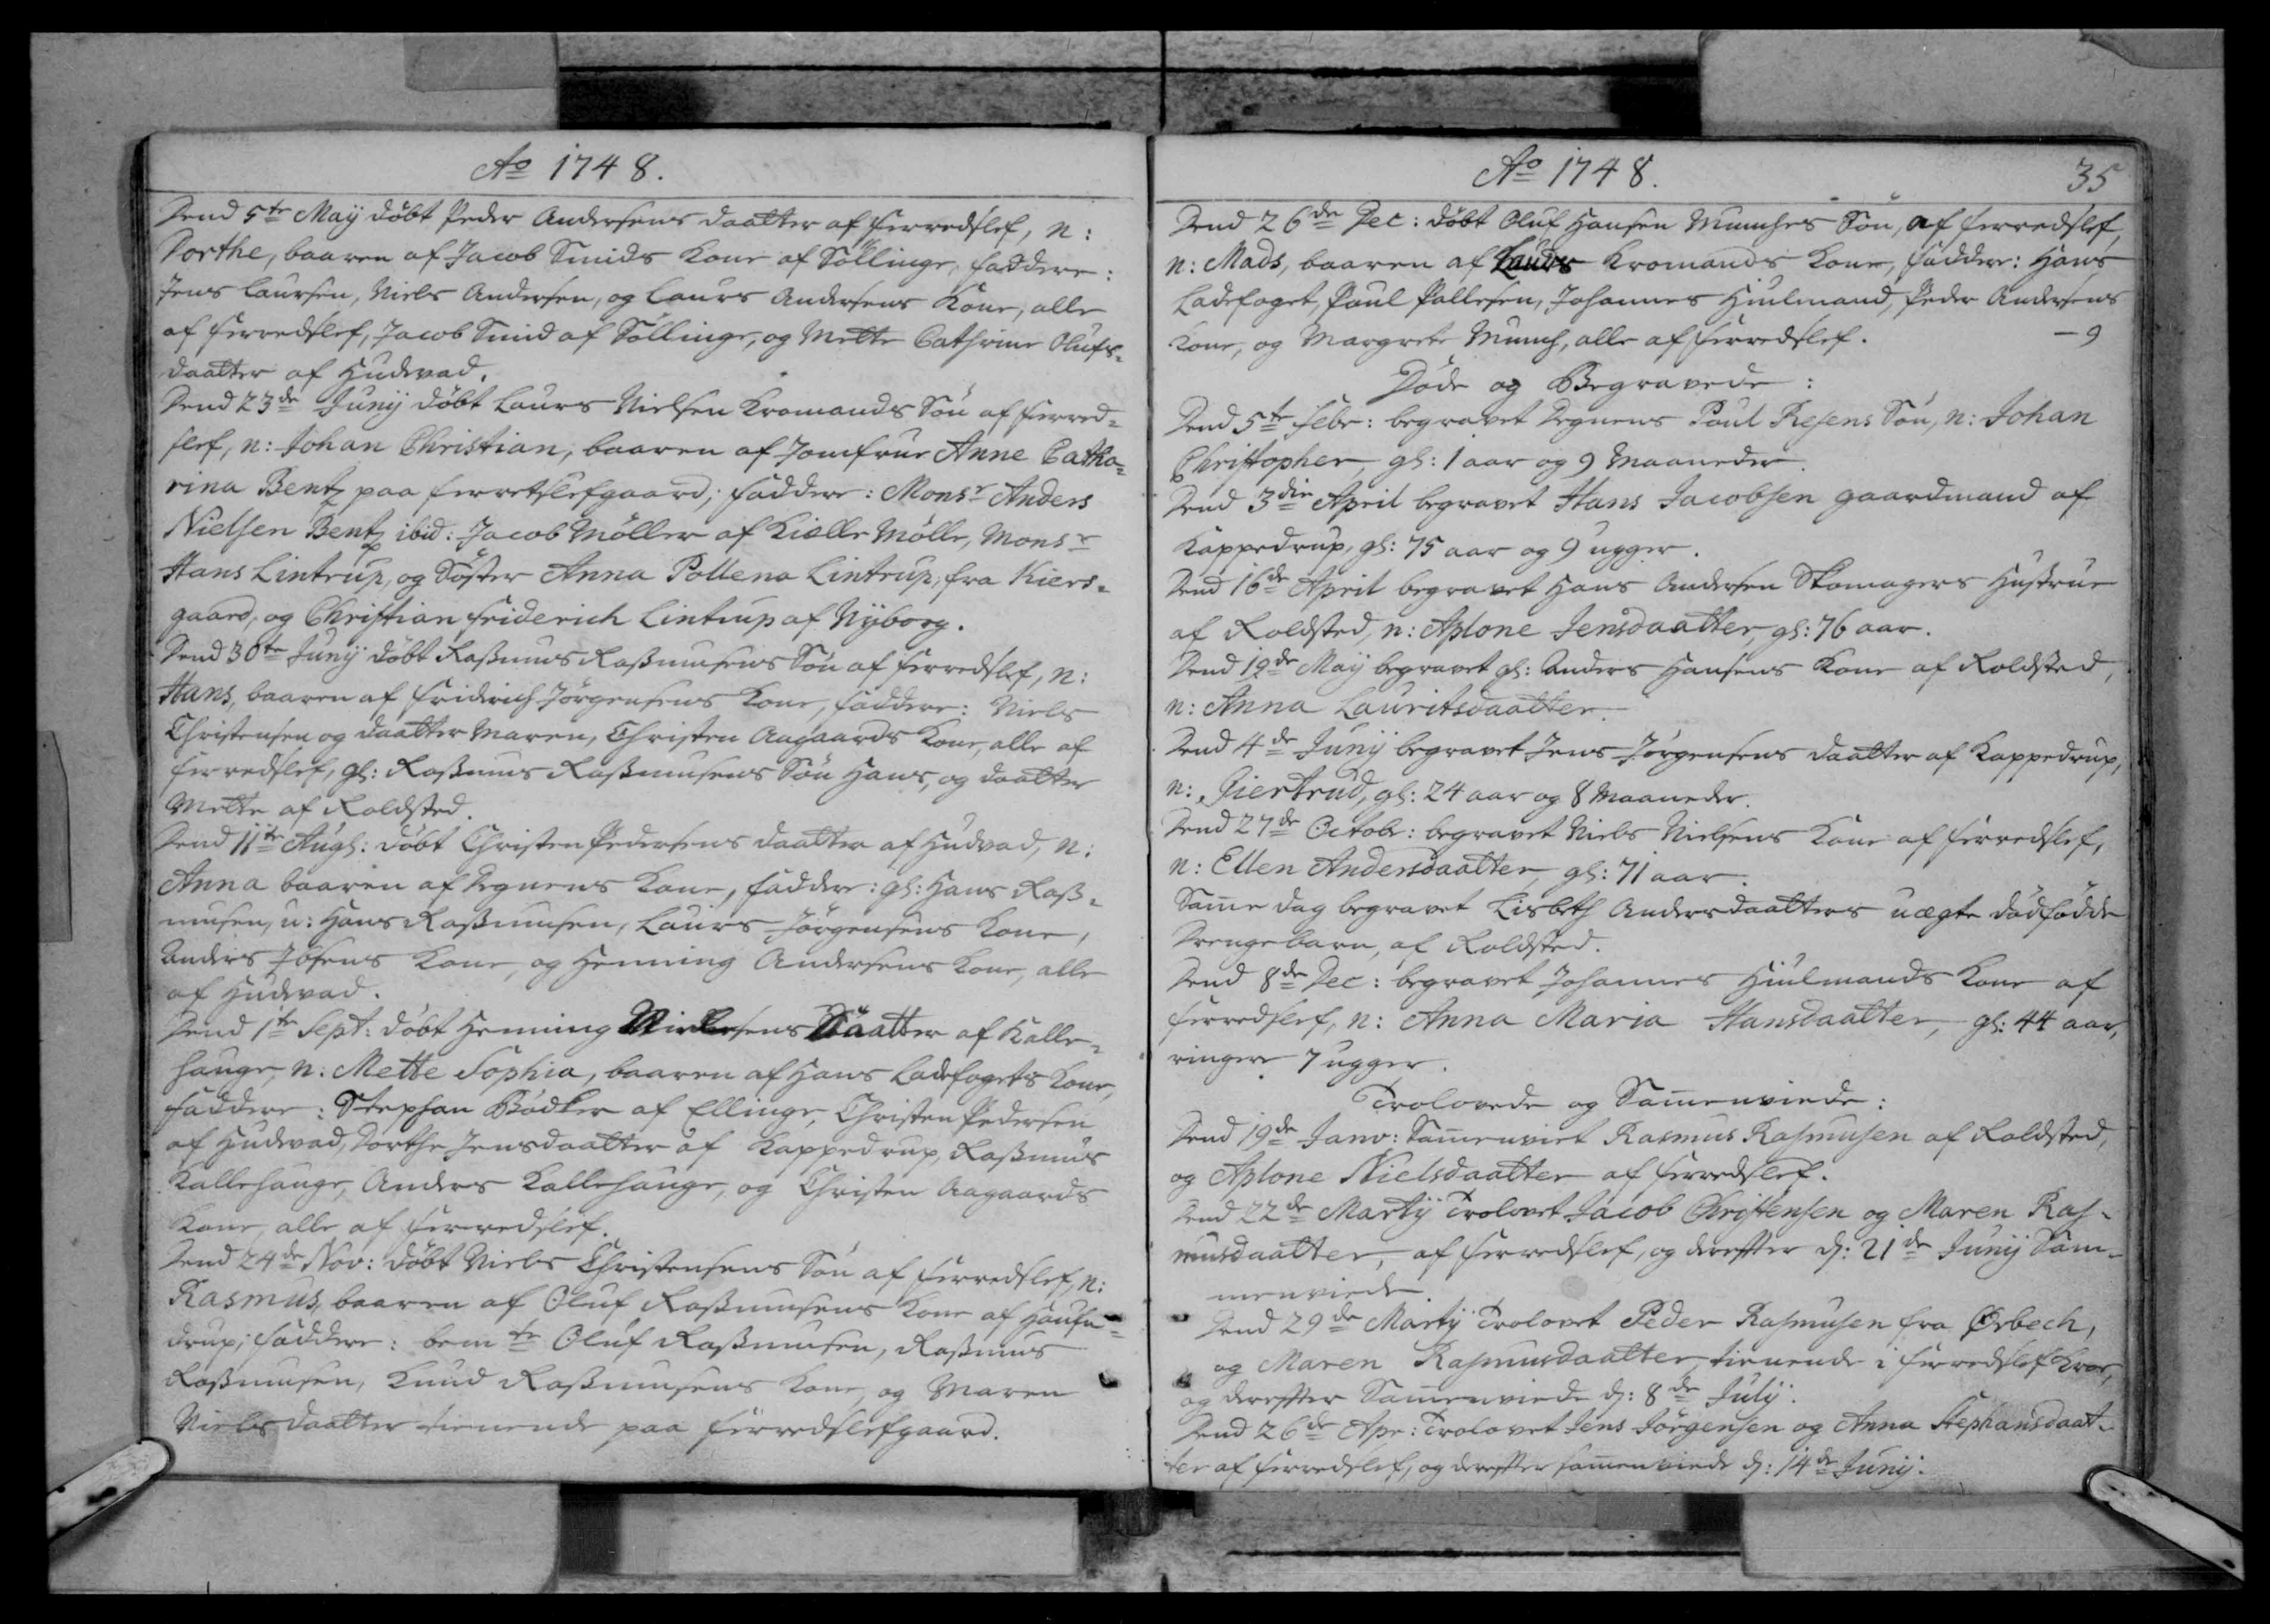 Ao 1748.
Dend 5te Maÿ döbt Peder Andersens daatter af Ferredslef, n:
Dorthe, baaren af Jacob Smids Kone af Söllinge, faddere:
Jens Laursen, Niels Andersen, og Laurs Andersens Kone, alle
af Ferredslef, Jacob Smid af Söllinge, og Mette Cathrine Olufs-
daatter af Hudevad.
Dend 23de Junÿ döbt Laurs Nielsen Kromands Sön af Ferred-
slef, n: Johan Christian, baaren af Jomfrue Anne Catha-
rina Bentz paa Ferretslefgaard; faddere: Monsr Anders
Nielsen Bentz ibid: Jacob Möller af Kielle Mölle, Monsr
Hans Lintrup, og Söster Anna Pollena Lintrup, fra Kiers-
gaard, og Christian Friderich Lintrup af Nÿborg.
Dend 30te Junÿ döbt Rasmus Rasmusens Sön af Ferredslef, n:
Hans, baaren af Fridrich Jörgensens Kone, faddere: Niels
Christensen og daatter Maren, Christen Aagaards Kone, alle af
Ferredslef, gl: Rasmus Rasmusens Sön Hans, og daatter
Mette af Roldsted.
Dend 11te Augs: döbt Christen Pedersens daatter af Hudevad, n:
Anna baaren af Degnens Kone, faddere: gl: Hans Ras-
musen, u: Hans Rasmusen, Laurs Jörgensens Kone,
Anders Ibsens Kone, og Henning Andersens Kone, alle
af Hudevad.
Dend 1te Sept: döbt Henning Nielsens Daatter af Kalle-
hauge, n: Mette Sophia, baaren af Hans Ladefogets Kone,
faddere: Stephan Bödker af Ellinge, Christen Pedersen
af Hudevad, Dorthe Jensdaatter af Kappedrup, Rasmus
Kallehauge, Anders Kallehauge, og Christen Aagaards
Kone, alle af Ferredslef.
Dend 24de Nov: döbt Niels Christensens Sön af Ferredslef, n:
Rasmus, baaren af Oluf Rasmusens Kone af
drup; faddere: bemte Oluf Rasmusen, Rasmus
Rasmusen, Knud Rasmusens Kone, og Maren
Nielsdaatter tienende paa Ferredslefgaard.
Ao 1748.
35
Dend 26de Dec: döbt Oluf Hansen Munches Sön, af Ferredslef,
n: Mads, baaren af Laurs Kromands Kone, faddere: Hans
Ladefoget, Poul Pallesen, Johannes Hiulmand, Peder Andersens
Kone, og Margrete Munch, alle af Ferredslef. - 9
Döde og Begravede:
Dend 5te Febr: begravet Degnens Poul Resens Sön, n: Johan
Christopher, gl: 1 aar og 9 Maaneder.
Dend 3die April begravet Hans Jacobsen gaardmand af
Kappedrup, gl: 75 aar og 9 ugger.
Dend 16de April begravet Hans Andersen Skomagers Hustrue
af Roldsted, n: Aplone Jensdaatter, gl: 76 aar.
Dend 19de Maÿ begravet gl: Anders Hansens Kone af Roldsted,
n: Anna Lauritsdaatter.
Dend 4de Junÿ begravet Jens Jörgensens daatter af Kappedrup,
n: Giertrud, gl: 24 aar og 8 Maaneder.
Dend 27de Octobr: begravet Niels Nielsens Kone af Ferredslef,
n: Ellen Andersdaatter, gl: 71 aar.
Samme dag begravet Lisbeth Andersdaatters uægte dödfödde
Drengebarn, af Roldsted.
Dend 8de Dec: begravet Johannes Hiulmands Kone af
Ferredslef, n: Anna Maria Hansdaatter, gl: 44 aar,
ringere 7 ugger.
Trolovede og Sammenviede:
Dend 19de Janv: Sammenviet Rasmus Rasmusen af Roldsted,
og Aplone Nielsdaatter af Ferredslef.
Dend 22de Martÿ Trolovet Jacob Christensen og Maren Ras-
musdaatter, af Ferredslef, og derefter d: 21de Junÿ Sam-
menviede.
Dend 29de Martÿ Trolovet Peder Rasmusen fra Ørbech,
og Maren Rasmusdaatter, tienende i Ferredslef Kroe,
og derefter Sammenviede d: 8de Julÿ.
Dend 26de Apr: Trolovet Jens Jörgensen og Anna Stephansdaat-
ter af Ferredslef, og derefter sammenviede d: 14de Junÿ.